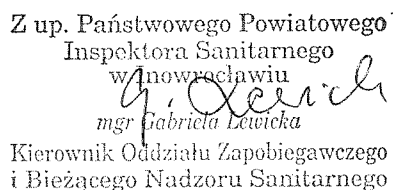 Z up. Państwowego Powiatowego
Inspektora Sanitarnego
w Inowrocławiu
G. Lewicka
mgr Gabriela Lewicka
Kierownik Oddziału Zapobiegawczego
i Bieżącego Nadzoru Sanitarnego